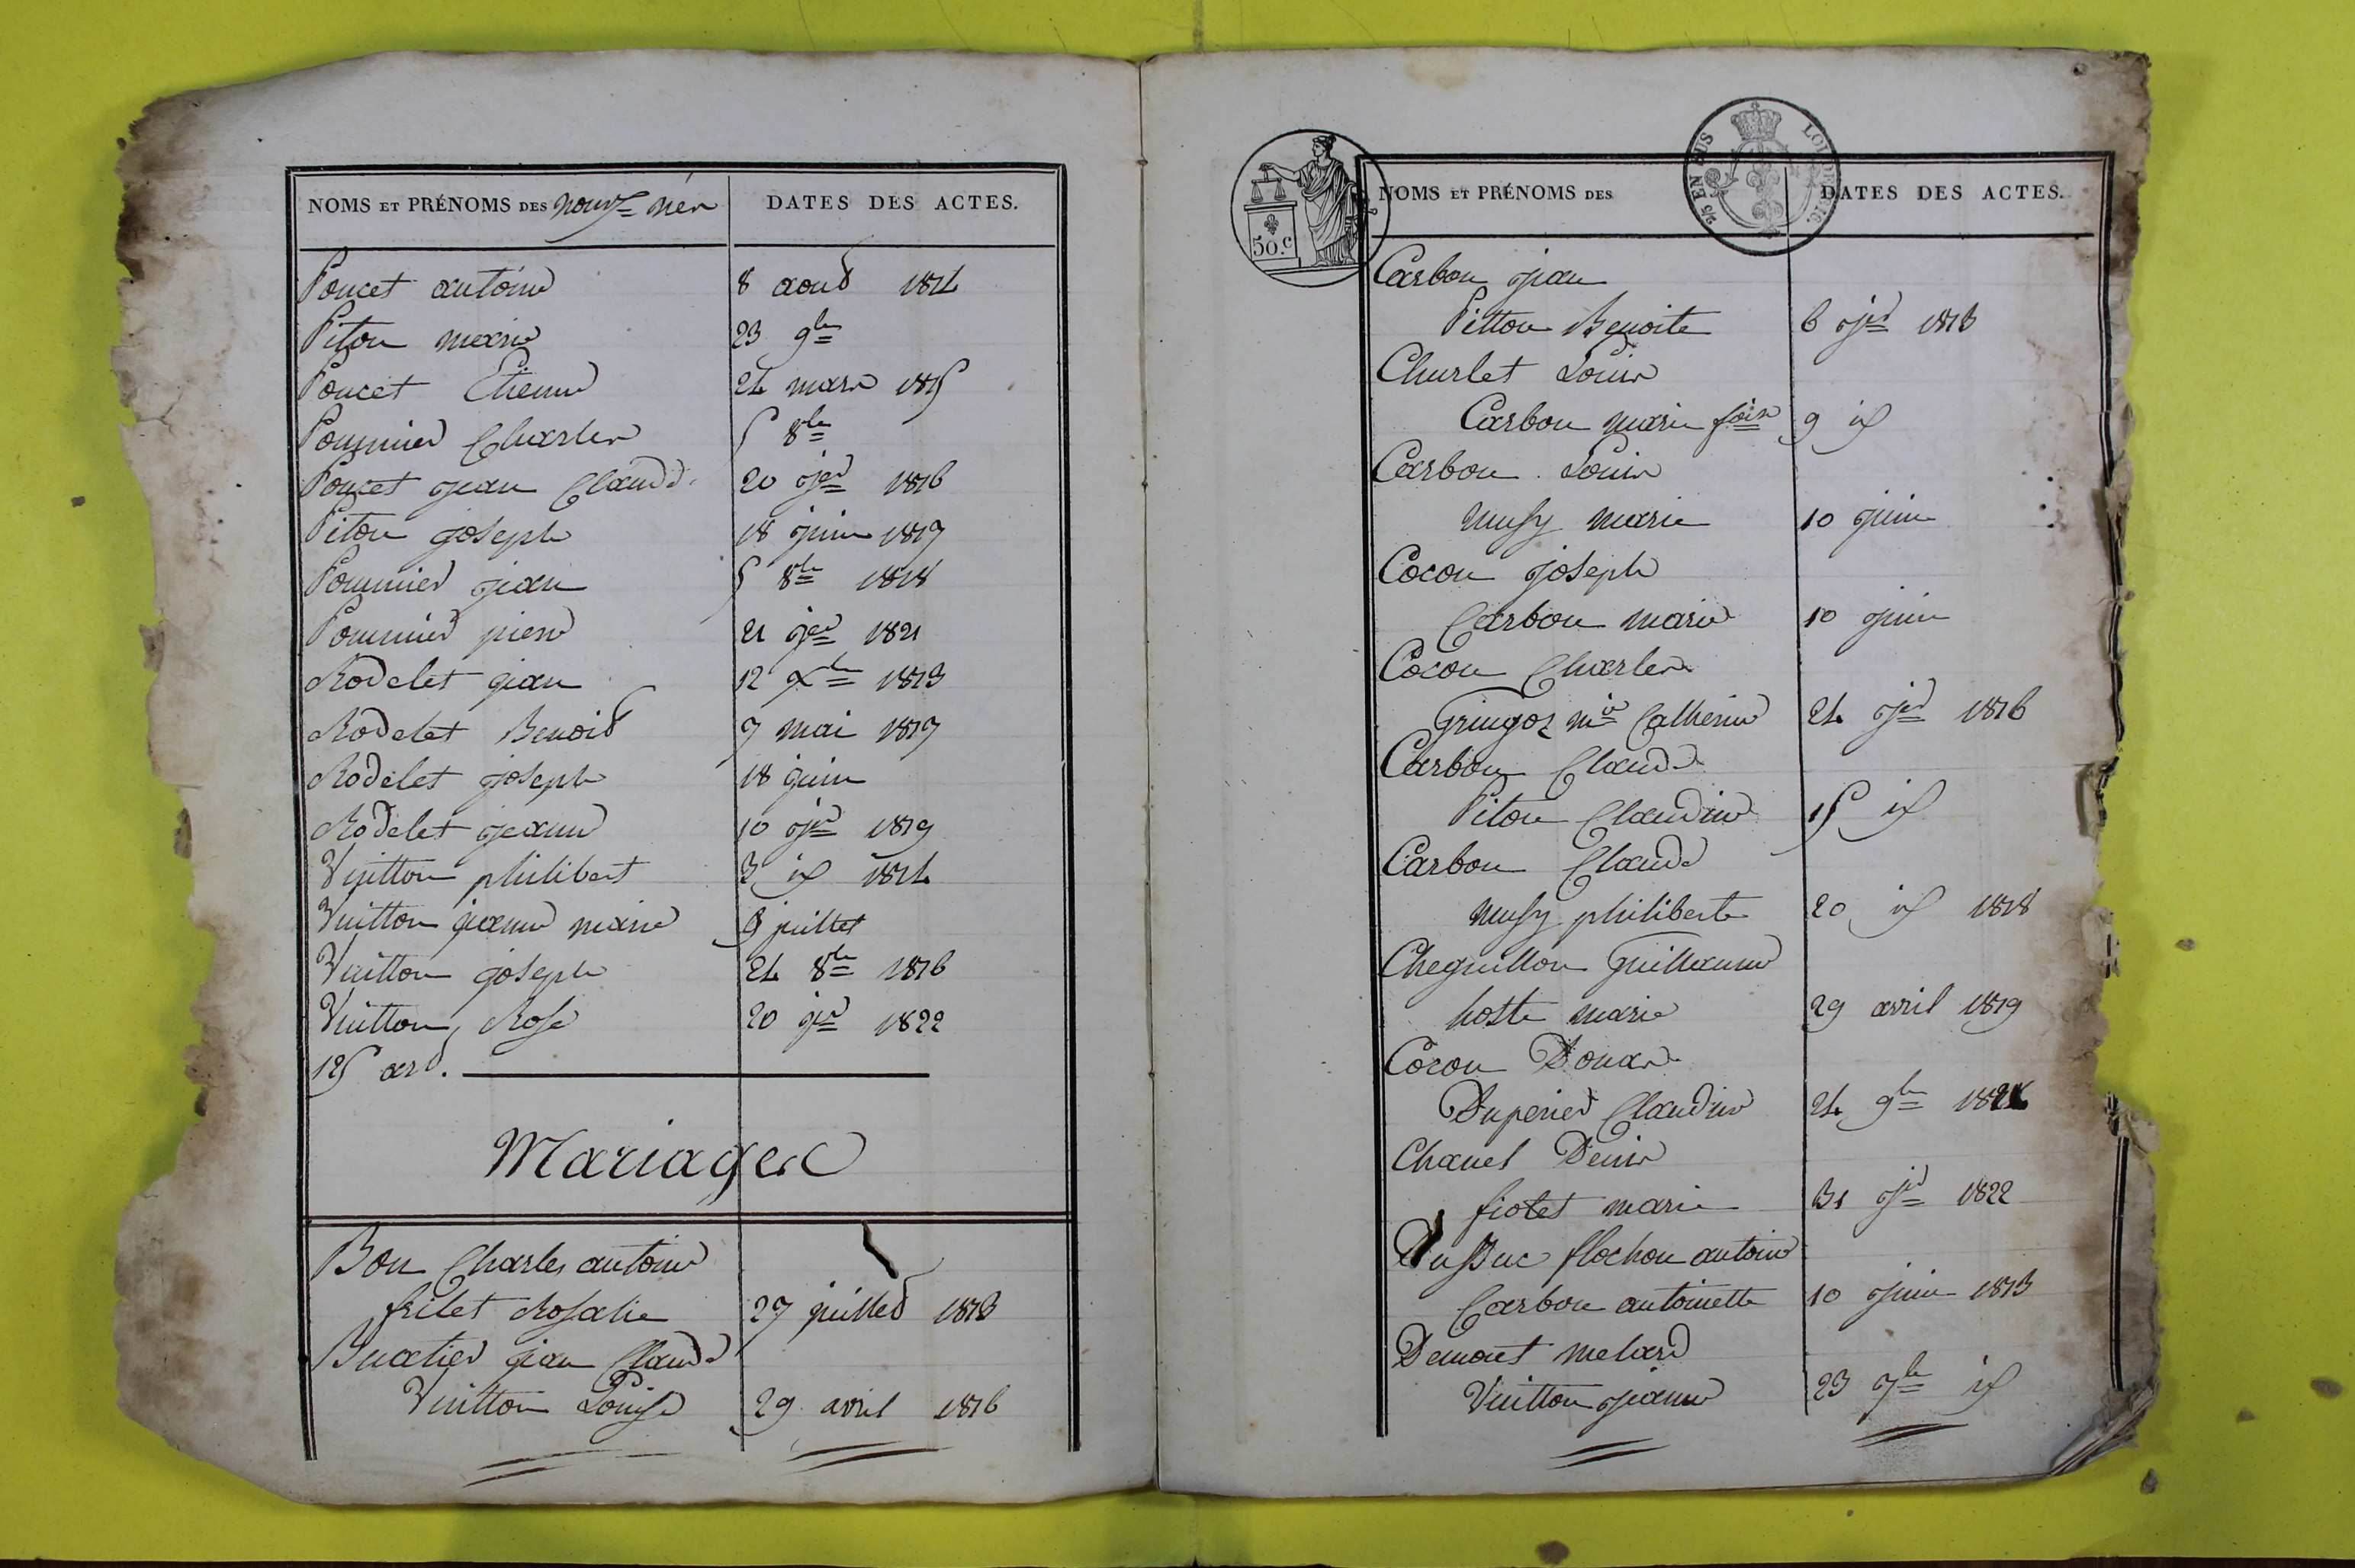 NOMS ET PRÉNOMS DES nouvx nés
DATES DES ACTES.
Poncet antoine 8 aout 1814
Piton marie 23 9bre
Poncet Etienne 24 mars 1815
Pommier Charles 5 8bre
Poncet jean Claude 20 jer 1816
Piton joseph 18 juin 1817
Pommier jean 5 8bre 1818
Pommier pierre 21 jer 1821
Rodelet jean 12 Xbre 1813
Rodelet Benoit 7 mai 1817
Rodelet joseph 18 juin
Rodelet jeanne 10 jer 1819
Vuitton philibert 3 id 1814
Vuitton jeanne marie 9 juillet
Vuitton joseph 24 8bre 1816
Vuitton Rose 20 jer 1822
125 art.
Mariages
Bon Charles antoine
frilet Rosalie 27 juillet 1813
Buatier jean Claude
Vuitton Louise 29 avril 1816
50.c
25 EN SUS
LOI DE 1816.
NOMS ET PRÉNOMS DES
DATES DES ACTES.
Carbon jean
Pitton Benoite 6 jer 1813
Churlet Louis
Carbon marie foise 9 id
Carbon Louis
musy marie 10 juin
Cocon joseph
Carbon marie 10 juin
Cocon Charles
Gringoz mie Catherine 24 jer 1816
Carbon Claude
Piton Claudine 15 id
Carbon Claude
musy philiberte 20 id 1818
Cheguillon Guillaume
hoste marie 29 avril 1819
Cocon Donat
Duperier Claudine 24 9bre 1821
Chanel Denis
fiolet marie 31 jer 1822
Du Buc flochon antoine
Carbon antoinette 10 juin 1813
Demont melard
Vuitton jeanne 23 7bre id